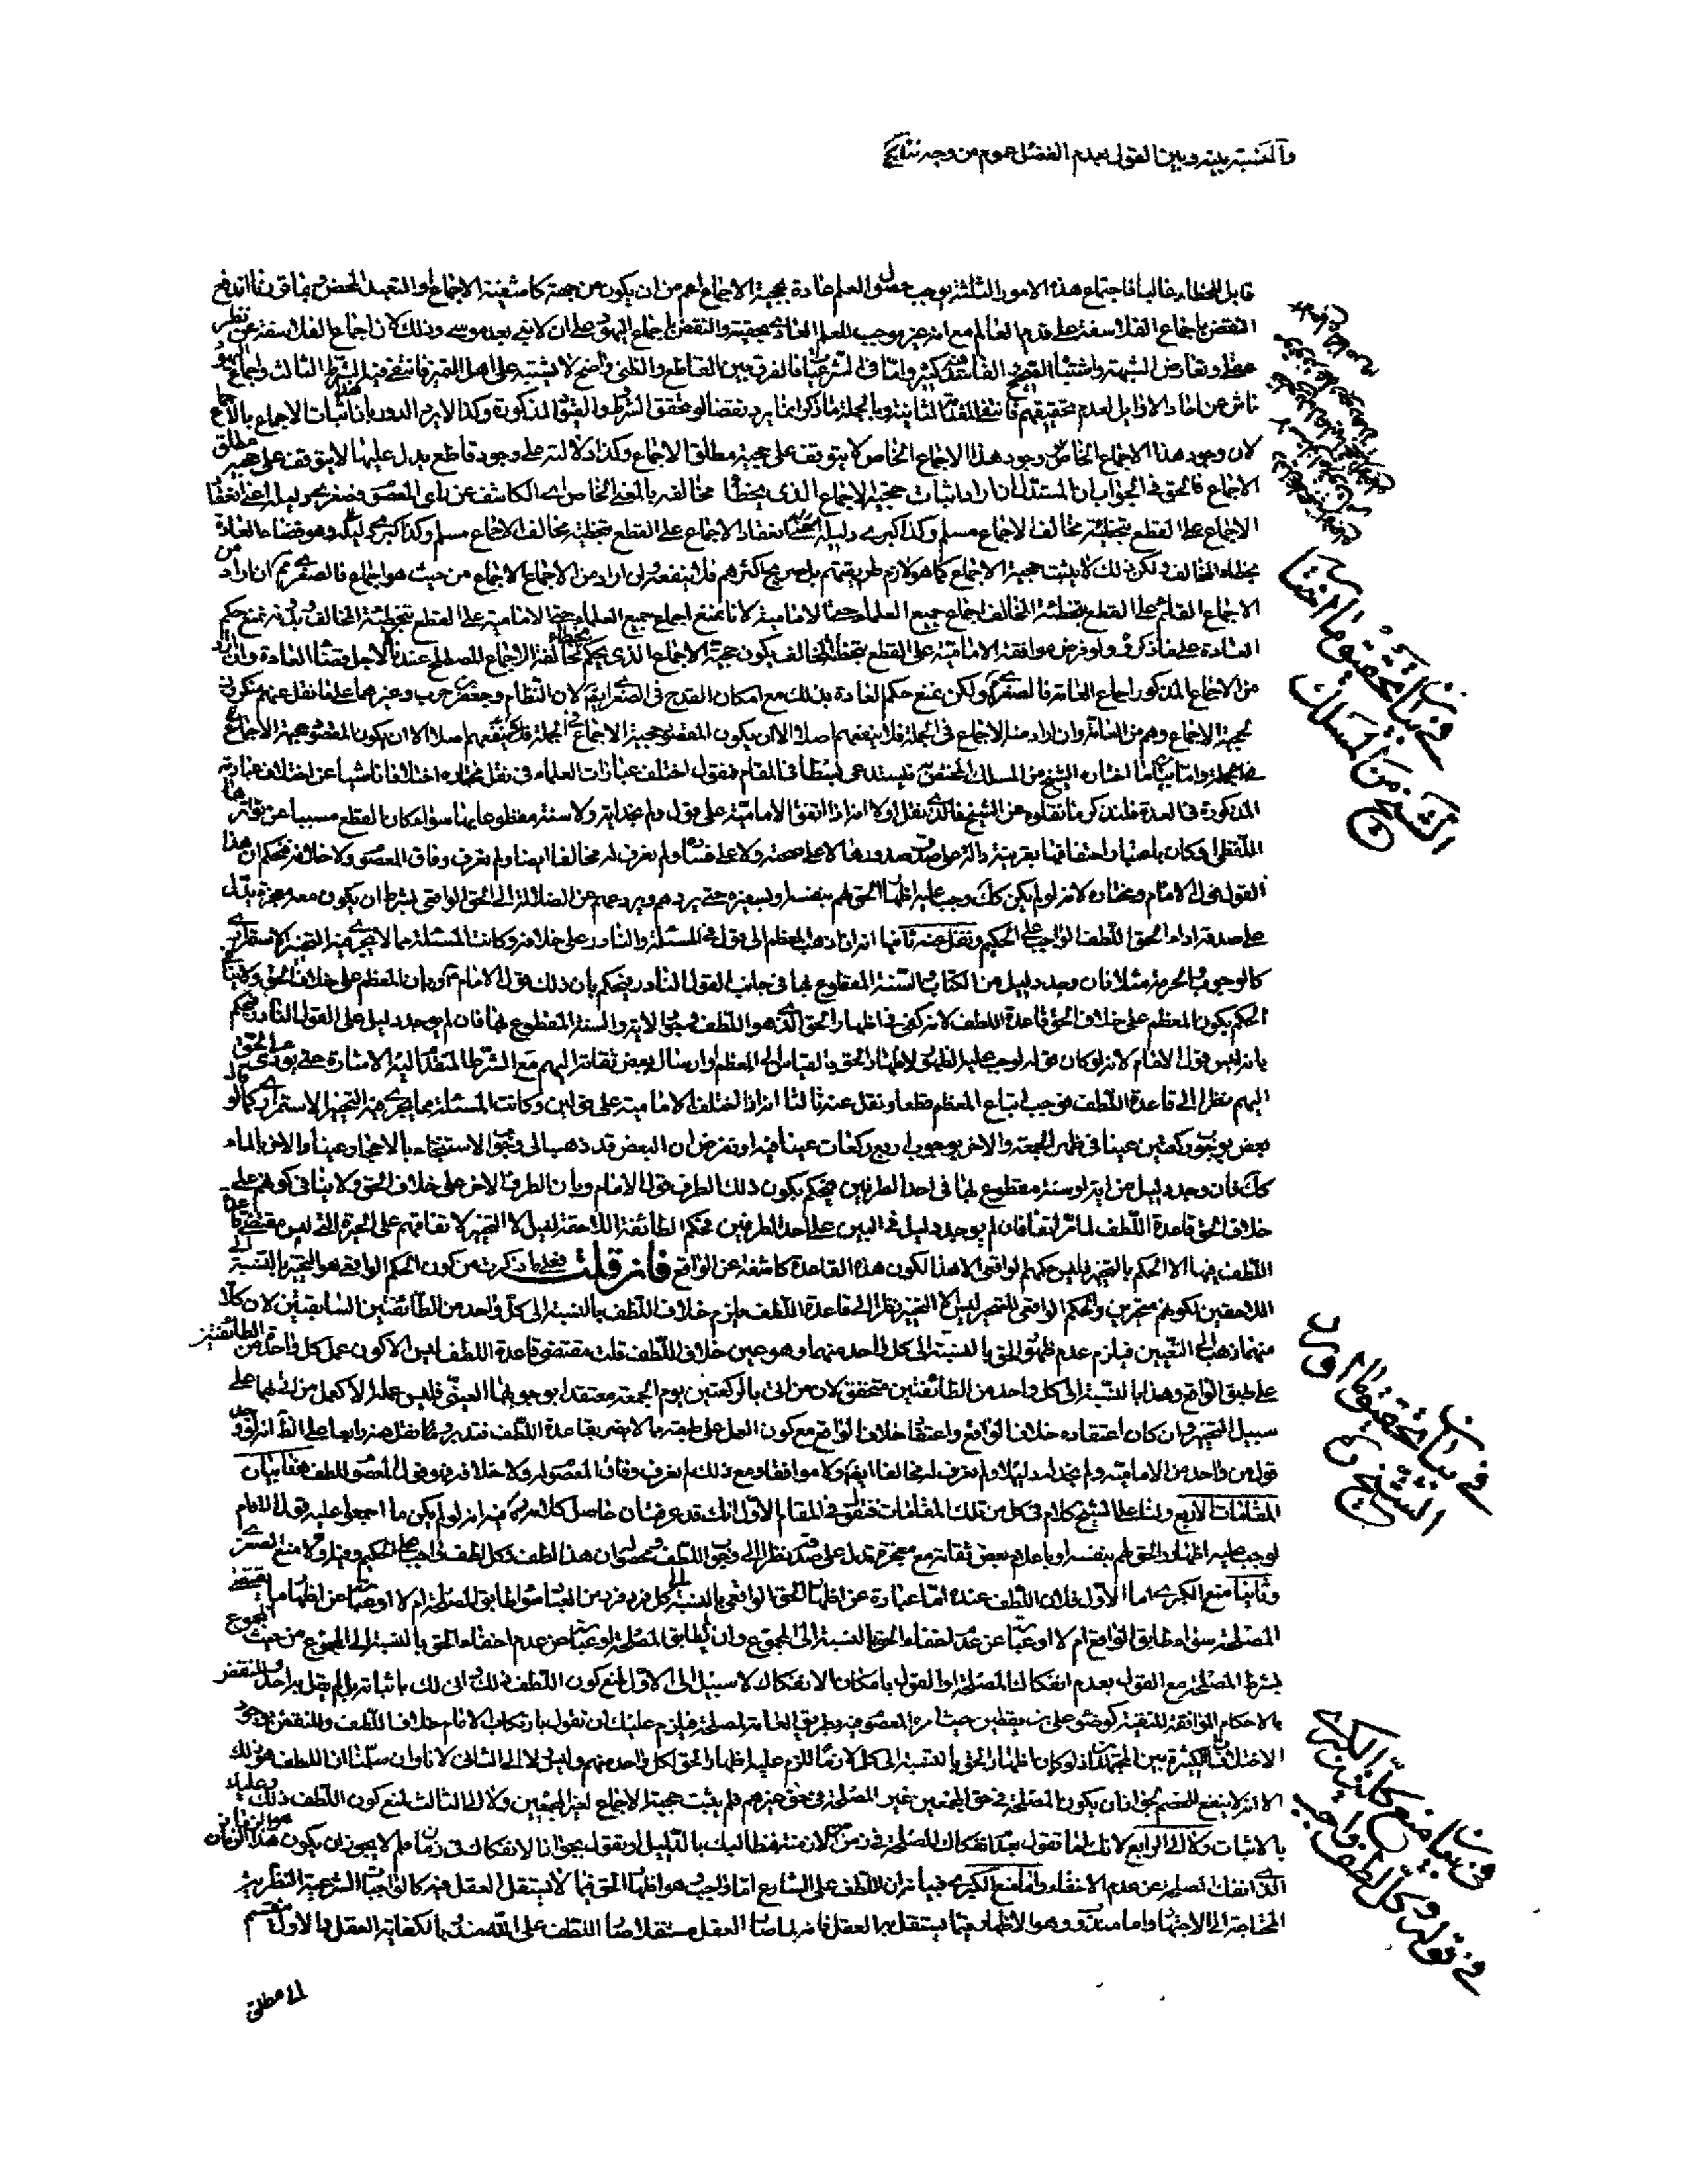 والنسبة بينه وبين القول بعدم الفصل عموم من وجه نتايج
قابل للخطاء غالبا فاجتماع هذه الامور الثلثة يوجب حصول العلم عادة بحجية الاجماع اعم من ان يكون من جهة كاشفية الاجماع او التعبد المحض ثم بما قررنا اندفع
النقض باجماع الفلاسفة على قدم العالم مع انه غير موجب للعلم العادى بحقيته والنقض باجماع اليهود على ان لا نبى بعد موسى وذلك لان اجماع الفلاسفة عن نظر
عقلى وتعارض الشبهة واشتباه الصحيح الفاسد فيه كثير واما فى الشرعيات فالفرق بين القاطع والظنى واضح لا يشتبه على اهل التميز فانتفى فيه الشرط الثالث واجماع اليهود
ناش عن احاد الاوايل لعدم تحقيقهم فانتفى المقدمة الثانية وبالجملة ما ذكر انما يرد نقضا لو تحقق الشروط والقيود المذكورة وكذا لا يرد الدور بان اثبات الاجماع بالاجماع
لان وجود هذا الاجماع الخاص وجود هذا الاجماع الخاص لا يتوقف على حجية مطلق الاجماع وكذا دلالته على وجود قاطع يدل عليها لا يتوقف على حجية مطلق
الاجماع فالحق فى الجواب ان المستدل ان اراد اثبات حجية الاجماع الذى يخطأ مخالفه بالمعنى الخاص اى الكاشف عن راى المعصوم فصغرى دليله اعنى انعقاد
الاجماع على القطع بتخطئة مخالف الاجماع مسلم وكذا كبرى دليله اعنى انعقاد الاجماع على القطع بتخطئة مخالف الاجماع مسلم وكذا كبرى دليله وهو قضاء العادة
بخطاء المخالف ولكن ذلك لا يثبت حجية الاجماع كما هو لازم طريقتهم بل صريح اكثرهم فلا ينفعه وان اراد من الاجماع الاجماع من حيث هو اجماع فالصغرى ثم ان اراد من
الاجماع القائم على القطع بتخطئة المخالف اجماع جميع العلماء حتى الامامية لانا نمنع اجماع جميع العلماء حتى الامامية على القطع بتخطئة المخالف وبدونه نمنع حكم
العادة على ما ذكره ولو فرض موافقة الامامية على القطع بتخطئة المخالف يكون حجية الاجماع الذى يحكم بخطاء مخالفة الاجماع المصطلح عندنا لا لاجل قضاء العادة وان اراد
من الاجماع المذكور اجماع العامة فالصغرى ولكن نمنع حكم العادة بذلك مع امكان القدح فى الصغرى ايضا لان النظام وجعفر بن حرب وغيرهما على ما نقل عنهم منكرون
لحجية الاجماع وهم من العامة وان اراد منه الاجماع فى الجملة فلا ينفعهم اصلا الا ان يكون المقصود حجية الاجماع فى الجملة
فى الجملة واما بيان ما اختاره الشيخ من المسلك لتحققه فيستدعى بسطا فى المقام فنقول اختلف عبارات العلماء فى نقل مختاره اختلافا ناشيا عن اختلاف عبارته
المذكورة فى العدة فلنذكر ما نقلوه عن الشيخ فالذى نقل اولا انه اذا اتفق الامامية على قول ولم نجد اية ولا سنة مقطوعا بها سواء كان القطع مسببا عن تواترها
اللفظى او كان باعتبار احتفافها بقرينة دالة على صدق صدورها لا على صحته ولا على فساده ولم نعرف له مخالفا ايضا ولم نعرف وفاق المعصوم ولا خلافه فنحكم ان هذا
القول قول الامام ومختاره لانه لو لم يكن كك وجب عليه اظهار الحق لهم بنفسه او بسفيره حتى يردهم ويردعهم عن الضلالة الى الحق الواقعى بشرط ان يكون معه معجزة يدل
على صدقه اداء لحق اللطف الواجب على الحكيم ونقل عنه ثانيا انه اذا ذهب المعظم الى قول فى المسئلة والنادر على خلافه وكانت المسئلة مما لا يجرى فيه التخيير الاستمرارى
كالوجوب والحرمة مثلا فان وجد دليل من الكتاب والسنة المقطوع بها فى جانب القول النادر فنحكم بان ذلك قول الامام وبان المعظم على خلاف الحق ولا ينافى
الحكم بكون المعظم على خلاف الحق قاعدة اللطف لانه كفى فى اظهار الحق الذى هو اللطف وجود الاية والسنة المقطوع بها فان لم يوجد دليل على القول النادر فنحكم
بانه ليس قول الامام لانه لو كان قوله لوجب عليه الظهور لاظهار الحق بالقياس الى المعظم او ارسال بعض ثقاته اليهم مع الشرط المتقدم اليه الاشارة حتى يؤدى على الحق
اليهم نظرا الى قاعدة اللطف فوجب اتباع المعظم قطعا ونقل عنه ثالثا انه اذا اختلف الامامية على قولين وكانت المسئلة مما يجرى فيه التخيير الاستمرارى كما لو قال
بعض بوجوب ركعتين عينا فى ظهر الجمعة والاخر بوجوب اربع ركعات عينا فيه او نفرض ان البعض قد ذهب الى وجوب الاستنجاء بالاحجار عينا والاخر بالماء
كك فان وجد دليل من اية او سنة مقطوع بها فى احد الطرفين فنحكم بكون ذلك الطرف قول الامام وبان الطرف الاخر على خلاف الحق ولا ينافى كونهم على
خلاف الحق قاعدة اللطف لما مر انفا فان لم يوجد دليل فى البين على احد الطرفين فحكم الطائفة اللاحقة ليس الا التخيير لاتفاقهم على الحيرة التى ليس مقتضى قاعدة
اللطف فيها الا الحكم بالتخيير فليس حكمهم الواقعى الا هذا لكون هذه القاعدة كاشفة عن الواقع فان قلت فعلى ما ذكرت من كون الحكم الواقعى هو التخيير بالنسبة الى
اللاحقين لكونهم متحيرين والحكم الواقعى للمتحير ليس الا التخيير نظرا الى قاعدة اللطف يلزم خلاف اللطف بالنسبة الى كل واحد من الطائفتين السابقتين لان كلا
منهما ذهب الى التعيين فيلزم عدم ظهور الحق بالنسبة الى كل واحد منهما وهو عين خلاف اللطف قلت مقتضى قاعدة اللطف ليس الا كون عمل كل واحد من الطائفتين
على طبق الواقع وهذا بالنسبة الى كل واحد من الطائفتين متحقق لان من اتى بالركعتين يوم الجمعة معتقدا بوجوبهما العينى فليس عمله الا كعمل من اتى بهما على
سبيل التخيير وان كان اعتقاده خلاف الواقع واعتقاد خلاف الواقع مع كون العمل على طبقه مما لا يضر بقاعدة اللطف فتدبر ومما نقل عنه رابعا على الظاهر انه لو وجد
قول من واحد من الامامية ولم نجد له دليلا ولم نعرف له مخالفا ايضا ولا موافقا ومع ذلك لم نعرف وفاق المعصوم له ولا خلافه فهو قول المعصوم للطف هذا بيان
المقامات الاربع ولنا على الشيخ كلام فى كل من تلك المقامات فنقول فى المقام الاول انك قد عرفت ان حاصل كلامه فيه انه لو لم يكن ما اجمعوا عليه قول الامام
لوجب عليه اظهار الحق لهم بنفسه او باعلام بعض ثقاته مع معجزة تدل على صدقه نظرا الى وجوب اللطف ومحصوله ان هذا لطف وكل لطف واجب على الحكيم وفيه اولا منع الصغرى
وثانيا منع الكبرى اما الاول فلان اللطف عنده اما عبارة عن اظهار الحق الواقعى بالنسبة الى كل فرد فرد من العباد سواء طابق المصلحة ام لا او عبارة عن اظهار ما يقتضى
المصلحة سواء طابق الواقع ام لا او عبارة عن عدم اختفاء الحق بالنسبة الى المجموع وان لم يطابق المصلحة او عبارة عن عدم اختفاء الحق بالنسبة الى المجموع من حيث المجموع
بشرط المصلحة مع القول بعدم انفكاك المصلحة او القول بامكان الانفكاك لا سبيل الى الاول لمنع كون اللطف ذلك انى لك باثباته بل لم يقل به احد للنقض
بالاحكام الموافقة للتقية كوضوء على بن يقطين حيث امره المعصوم فيه بطريق العامة لمصلحة فيلزم عليك ان تقول بارتكاب الامام خلاف اللطف وللنقض بوجود
الاختلافات الكثيرة بين المجتهدين اذ لو كان اظهار الحق بالنسبة الى كل لازما للزم عليه اظهار الحق لكل واحد منهم وليس ولا الى الثانى لانا وان سلمنا ان اللطف هو ذلك
الا انه لا ينفع للخصم لجواز ان يكون المصلحة فى حق المجمعين غير المصلحة فى حق غيرهم فلم يثبت حجية الاجماع لغير المجمعين ولا الى الثالث لمنع كون اللطف ذلك وعليك
بالاثبات ولا الى الرابع لانك اما تقول بعدم انفكاك المصلحة فى زمن من الازمنة فنطالبك بالدليل او تقول بجواز الانفكاك فى زمان ما فلم لا يجوز ان يكون هذا الزمان هو الزمان
الذى انفك المصلحة عن عدم الاختفاء واما منع الكبرى فبيانه ان اللطف على الشارع اما واجب هو اظهار الحق فيما لا يستقل العقل فيه كالواجبات الشرعية النظرية
المحتاجة الى الاجتهاد واما مندوب وهو الاظهار فيما يستقل به العقل
فى بيان تحقيق ما اختاره
الشيخ من المسلك
فى بيان تحقيق ما اورد
الشيخ
فى بيان منع كلية الكبرى
فى قوله وكل لطف واجب
الى مطلق